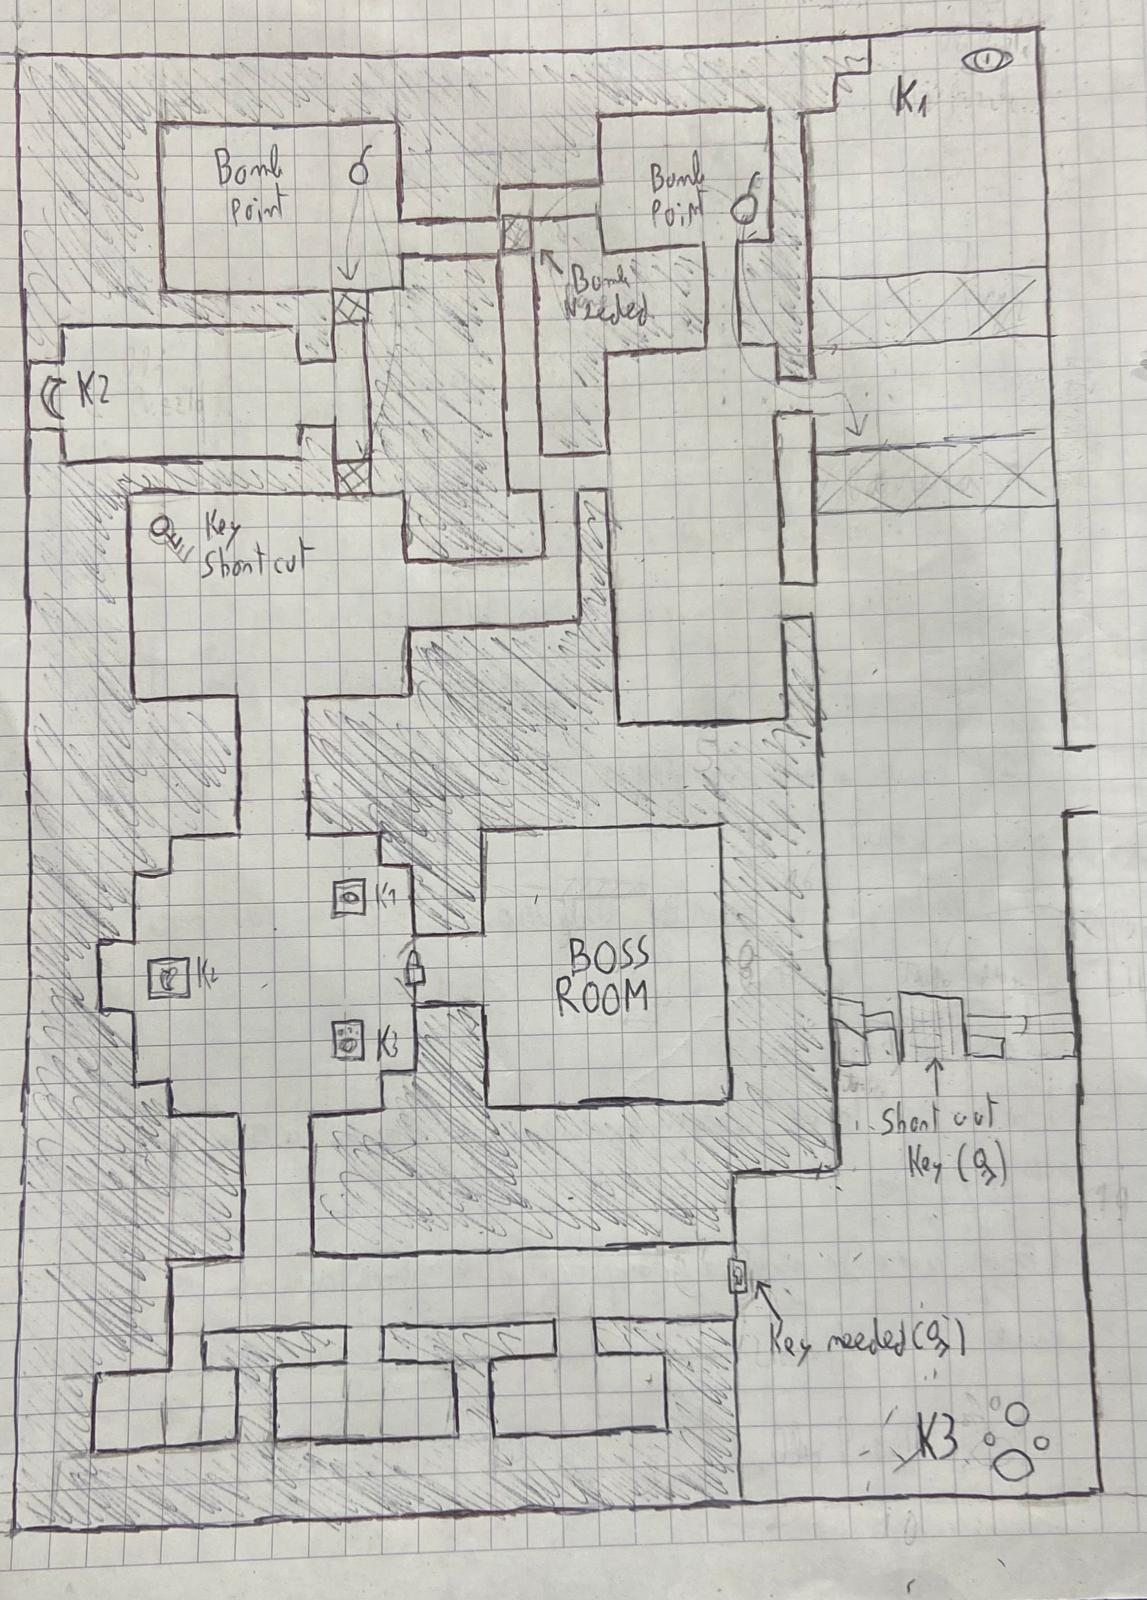 K1
Bomb
Point
Bomb
Point
Bomb
Needed
K2
Key
Short cut
K1
K2
K3
BOSS
ROOM
Short cut
Key
Key needed
K3